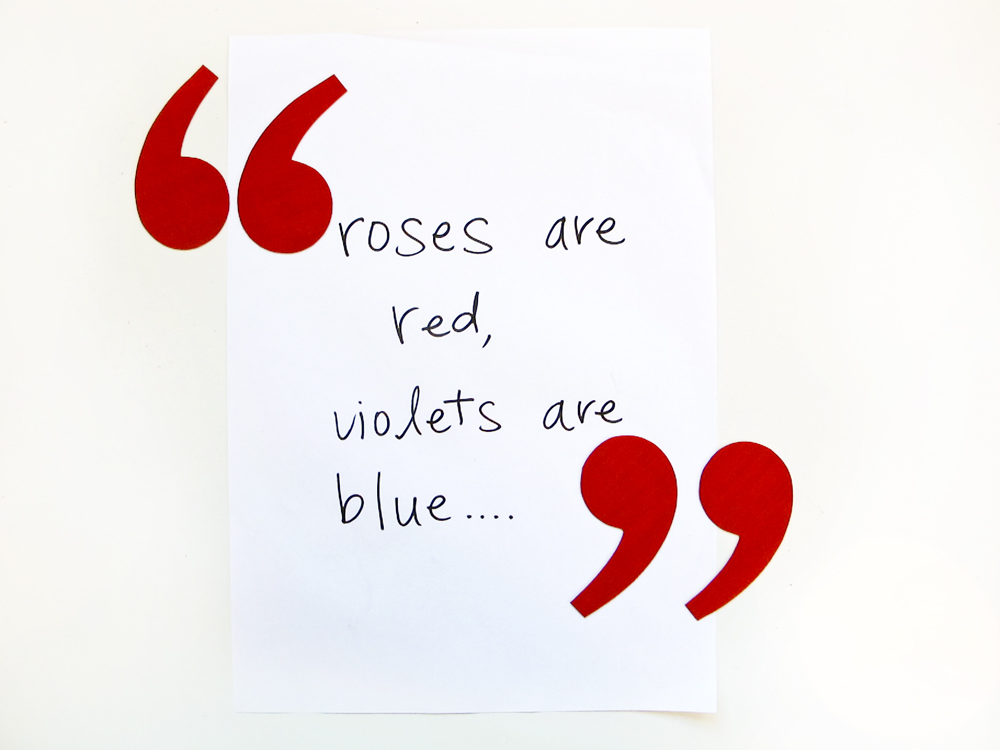 “roses are
red,
violets are
blue....”